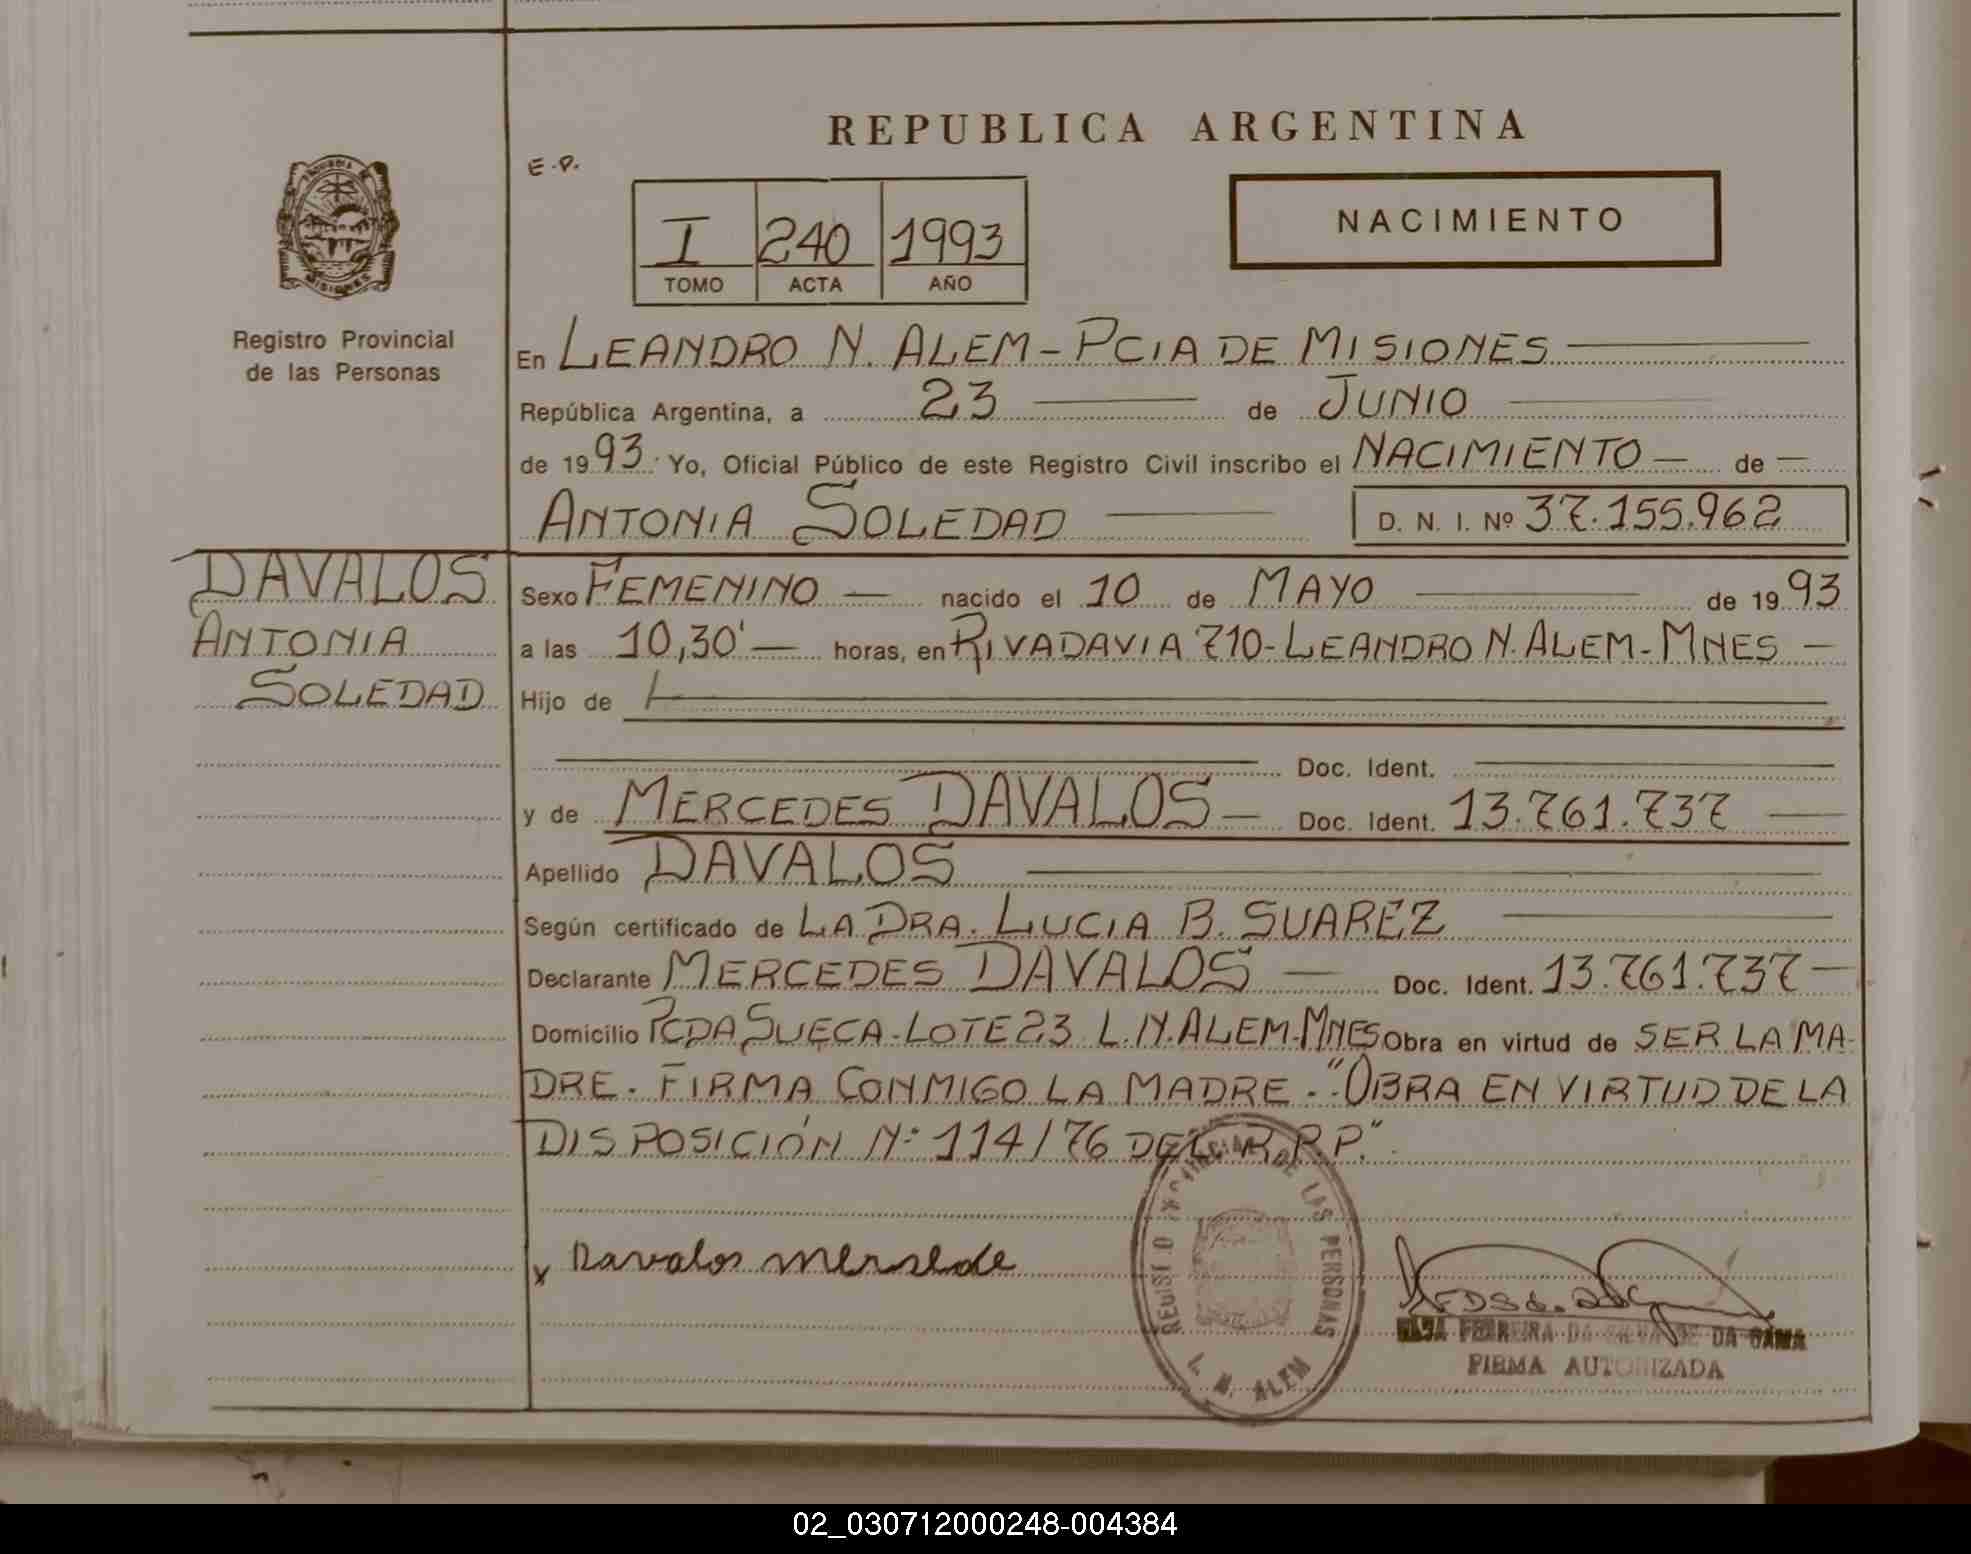 REPUBLICA ARGENTINA
E.P.
NACIMIENTO
I 240 1993
TOMO ACTA AÑO
MISIONES
Registro Provincial
de las Personas
En LEANDRO N. ALEM - PCIA DE MISIONES
República Argentina, a 23 de JUNIO
de 1993. Yo, Oficial Público de este Registro Civil inscribo el NACIMIENTO - de -
ANTONIA SOLEDAD D. N. I. Nº 37.155.962
DAVALOS
ANTONIA
SOLEDAD
Sexo FEMENINO - nacido el 10 de MAYO de 1993
a las 10,30' - horas, en RIVADAVIA 710 - LEANDRO N. ALEM - MNES -
Hijo de
Doc. Ident.
y de MERCEDES DAVALOS - Doc. Ident. 13.761.737 -
Apellido DAVALOS
Según certificado de LA DRA. LUCIA B. SUAREZ
Declarante MERCEDES DAVALOS - Doc. Ident. 13.761.737 -
Domicilio PCDA SUECA - LOTE 23 L.N. ALEM - MNES Obra en virtud de SER LA MA-
DRE. FIRMA CONMIGO LA MADRE. "OBRA EN VIRTUD DE LA
DISPOSICIÓN Nº 114/76 DEL R.P.P."
x Davalos mersede
REGISTRO PROVINCIAL DE LAS PERSONAS
L. N. ALEM
FERREIRA DA SILVA DE DA GAMA
FIRMA AUTORIZADA
02_030712000248-004384